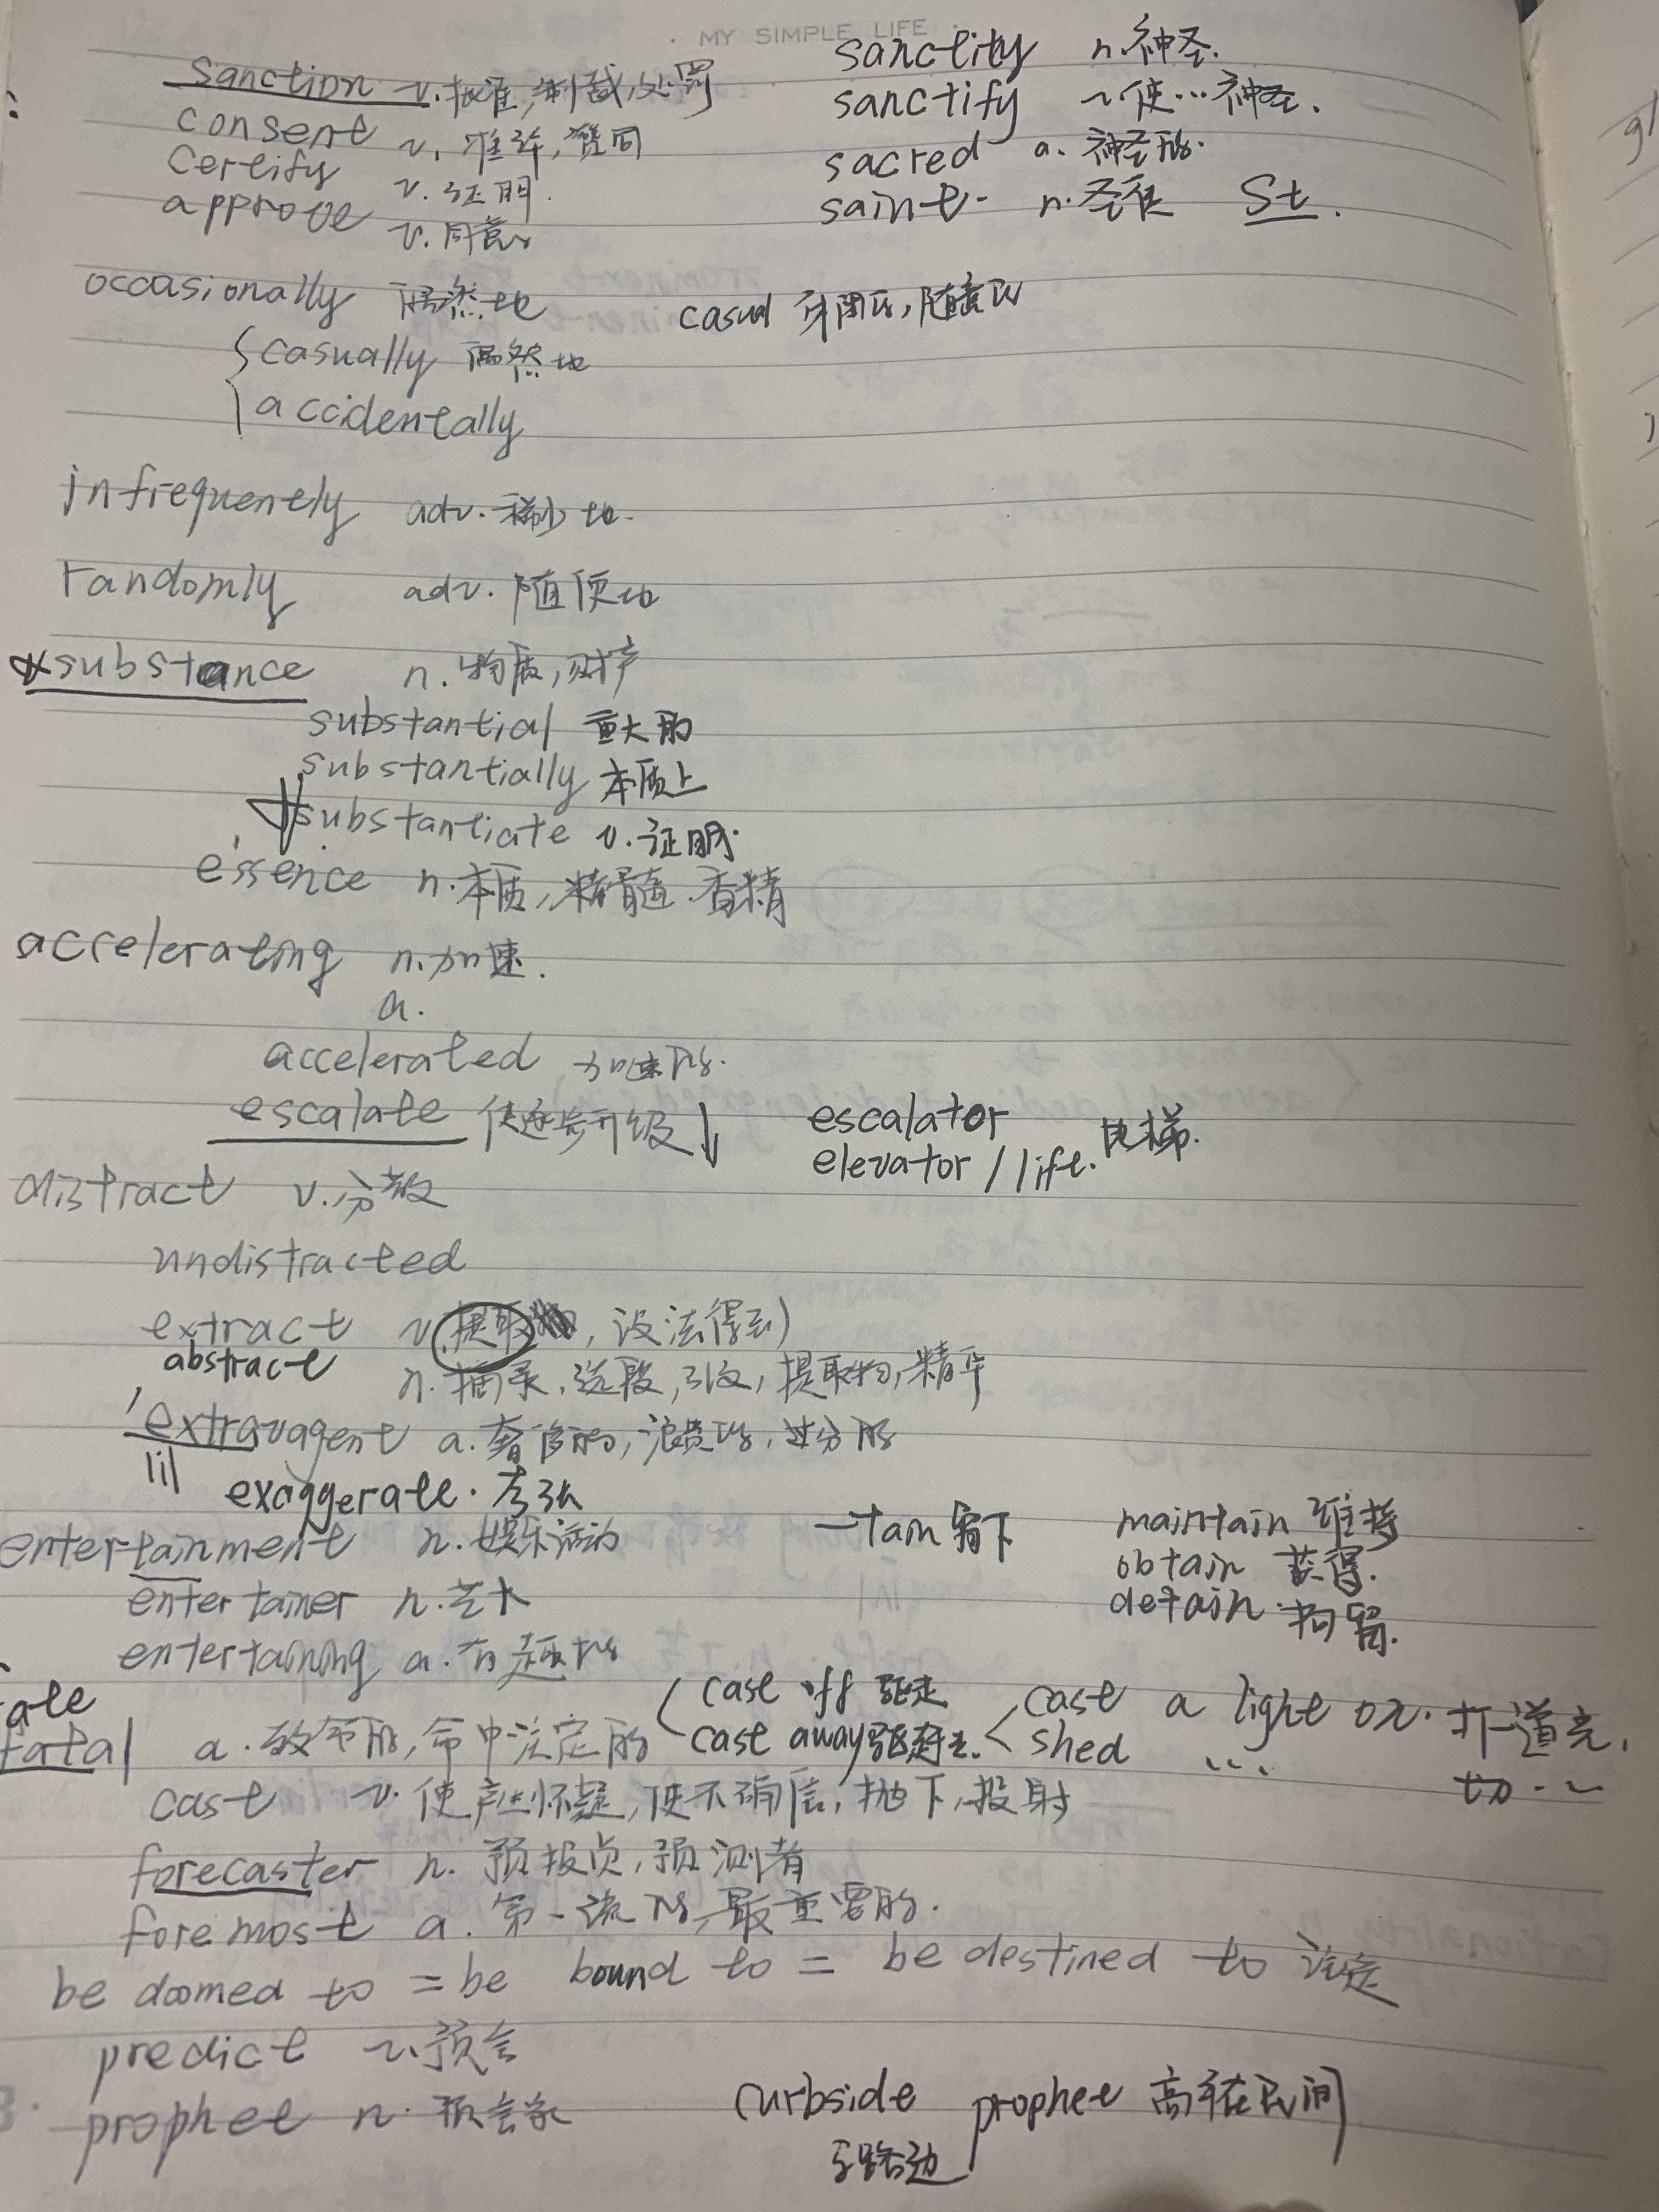 MY SIMPLE LIFE
sanction v.批准,制裁,处罚
sanctity n.神圣.
consent v.准许,赞同
sanctify v.使…神圣.
certify v.证明.
sacred a.神圣的.
approve v.同意
saint. n.圣徒 St.
occasionally 偶然地
casual 休闲的,随意的
casually 偶然地
accidentally
infrequently adv.稀少地.
randomly adv.随便地
substance n.物质,财产
substantial 重大的
substantially 本质上
substantiate v.证明.
essence n.本质,精髓.香精
accelerating n.加速.
a.
accelerated 加速的.
escalate 使逐步升级↓
escalator
elevator/lift. 电梯.
distract v.分散
undistracted
extract v.提取,设法得到)
abstract n.摘录,选段,引文,提取物,精华
extravagent a.奢侈的,浪费的,过分的
exaggerate.夸张
entertainment n.娱乐活动
-tain 留下
maintain 维持
obtain 获得.
detain.拘留.
entertainer n.艺人
entertaining a.有趣的
cast off 驱走
cast away驱赶走.
cast a light on.打一道光,
shed ...
ate
fatal a.致命的,命中注定的
cast v.使产生怀疑,使不确信,抛下,投射
forecaster n.预报员,预测者
foremost a.第一流的,最重要的.
be doomed to = be bound to = be destined to 注定
predict v.预言
prophet n.预言家
curbside prophet 高手在民间
马路边